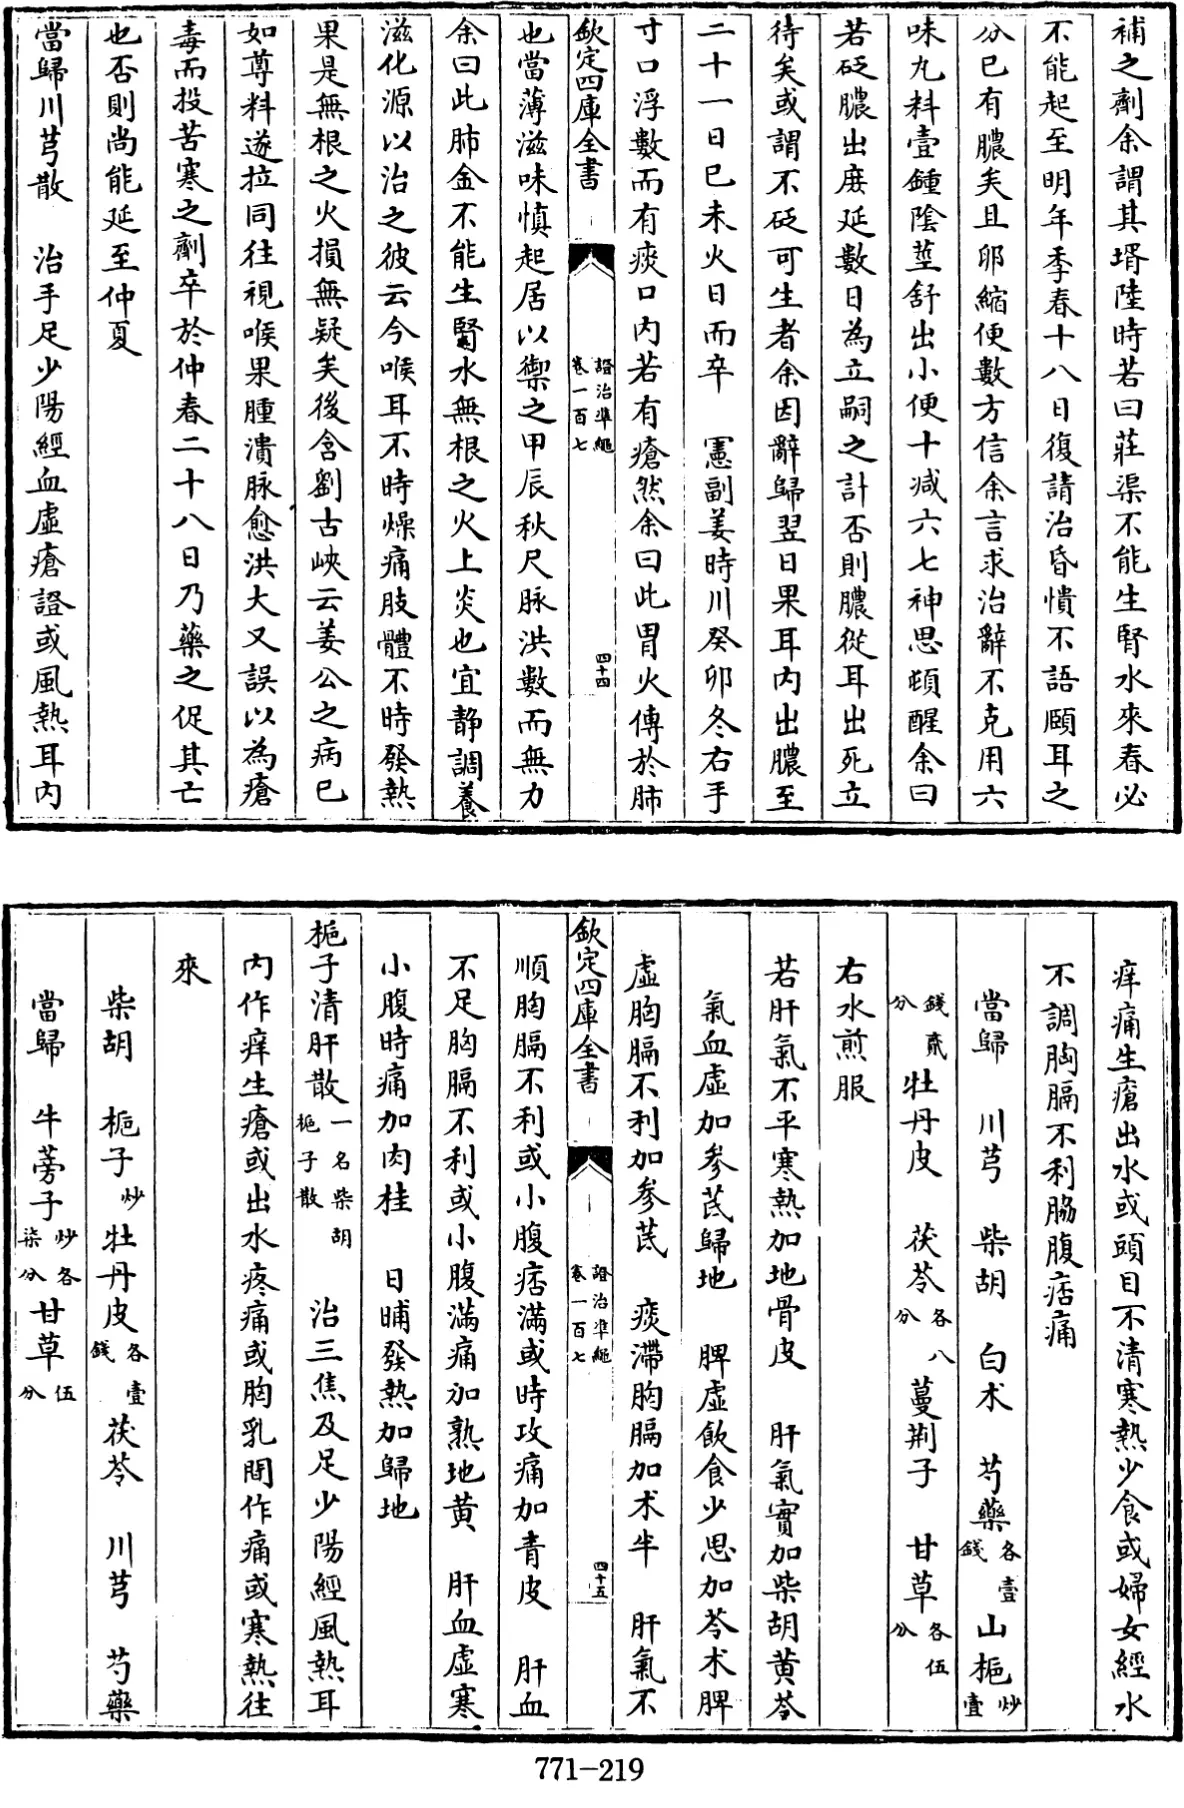 補之劑余謂其壻陸時若曰莊渠不能生腎水來春必
不能起至明年季春十八日復請治昏憒不語頤耳之
分已有膿矣且卵縮便數方信余言求治辭不克用六
味丸料壹鍾陰莖舒出小便十減六七神思頓醒余曰
若砭膿出庶延數日為立嗣之計否則膿從耳出死立
待矣或謂不砭可生者余因辭歸翌日果耳內出膿至
二十一日巳未火日而卒　憲副姜時川癸卯冬右手
寸口浮數而有痰口內若有瘡然余曰此胃火傳於肺
欽定四庫全書
證治準繩
卷一百七
四十四
也當薄滋味慎起居以禦之甲辰秋尺脉洪數而無力
余曰此肺金不能生腎水無根之火上炎也宜靜調養
滋化源以治之彼云今喉耳不時燥痛肢體不時發熱
果是無根之火損無疑矣後含劉古峽云姜公之病已
如尊料遂拉同往視喉果腫潰脉愈洪大又誤以為瘡
毒而投苦寒之劑卒於仲春二十八日乃藥之促其亡
也否則尚能延至仲夏
當歸川芎散　治手足少陽經血虛瘡證或風熱耳內
痒痛生瘡出水或頭目不清寒熱少食或婦女經水
不調胸膈不利脇腹痞痛
當歸　川芎　柴胡　白术　芍藥各壹錢　山梔炒壹
錢貳分　牡丹皮　茯苓各八分　蔓荆子　甘草各伍分
右水煎服
若肝氣不平寒熱加地骨皮　肝氣實加柴胡黃芩
氣血虛加參芪歸地　脾虛飲食少思加苓术脾
虛胸膈不利加參芪　痰滯胸膈加术半　肝氣不
欽定四庫全書
證治準繩
卷一百七
四十五
順胸膈不利或小腹痞滿或時攻痛加青皮　肝血
不足胸膈不利或小腹滿痛加熟地黃　肝血虛寒
小腹時痛加肉桂　日晡發熱加歸地
梔子清肝散一名柴胡梔子散　治三焦及足少陽經風熱耳
內作痒生瘡或出水疼痛或胸乳間作痛或寒熱往
來
柴胡　梔子炒　牡丹皮各壹錢　茯苓　川芎　芍藥
當歸　牛蒡子炒各柒分　甘草伍分
771-219